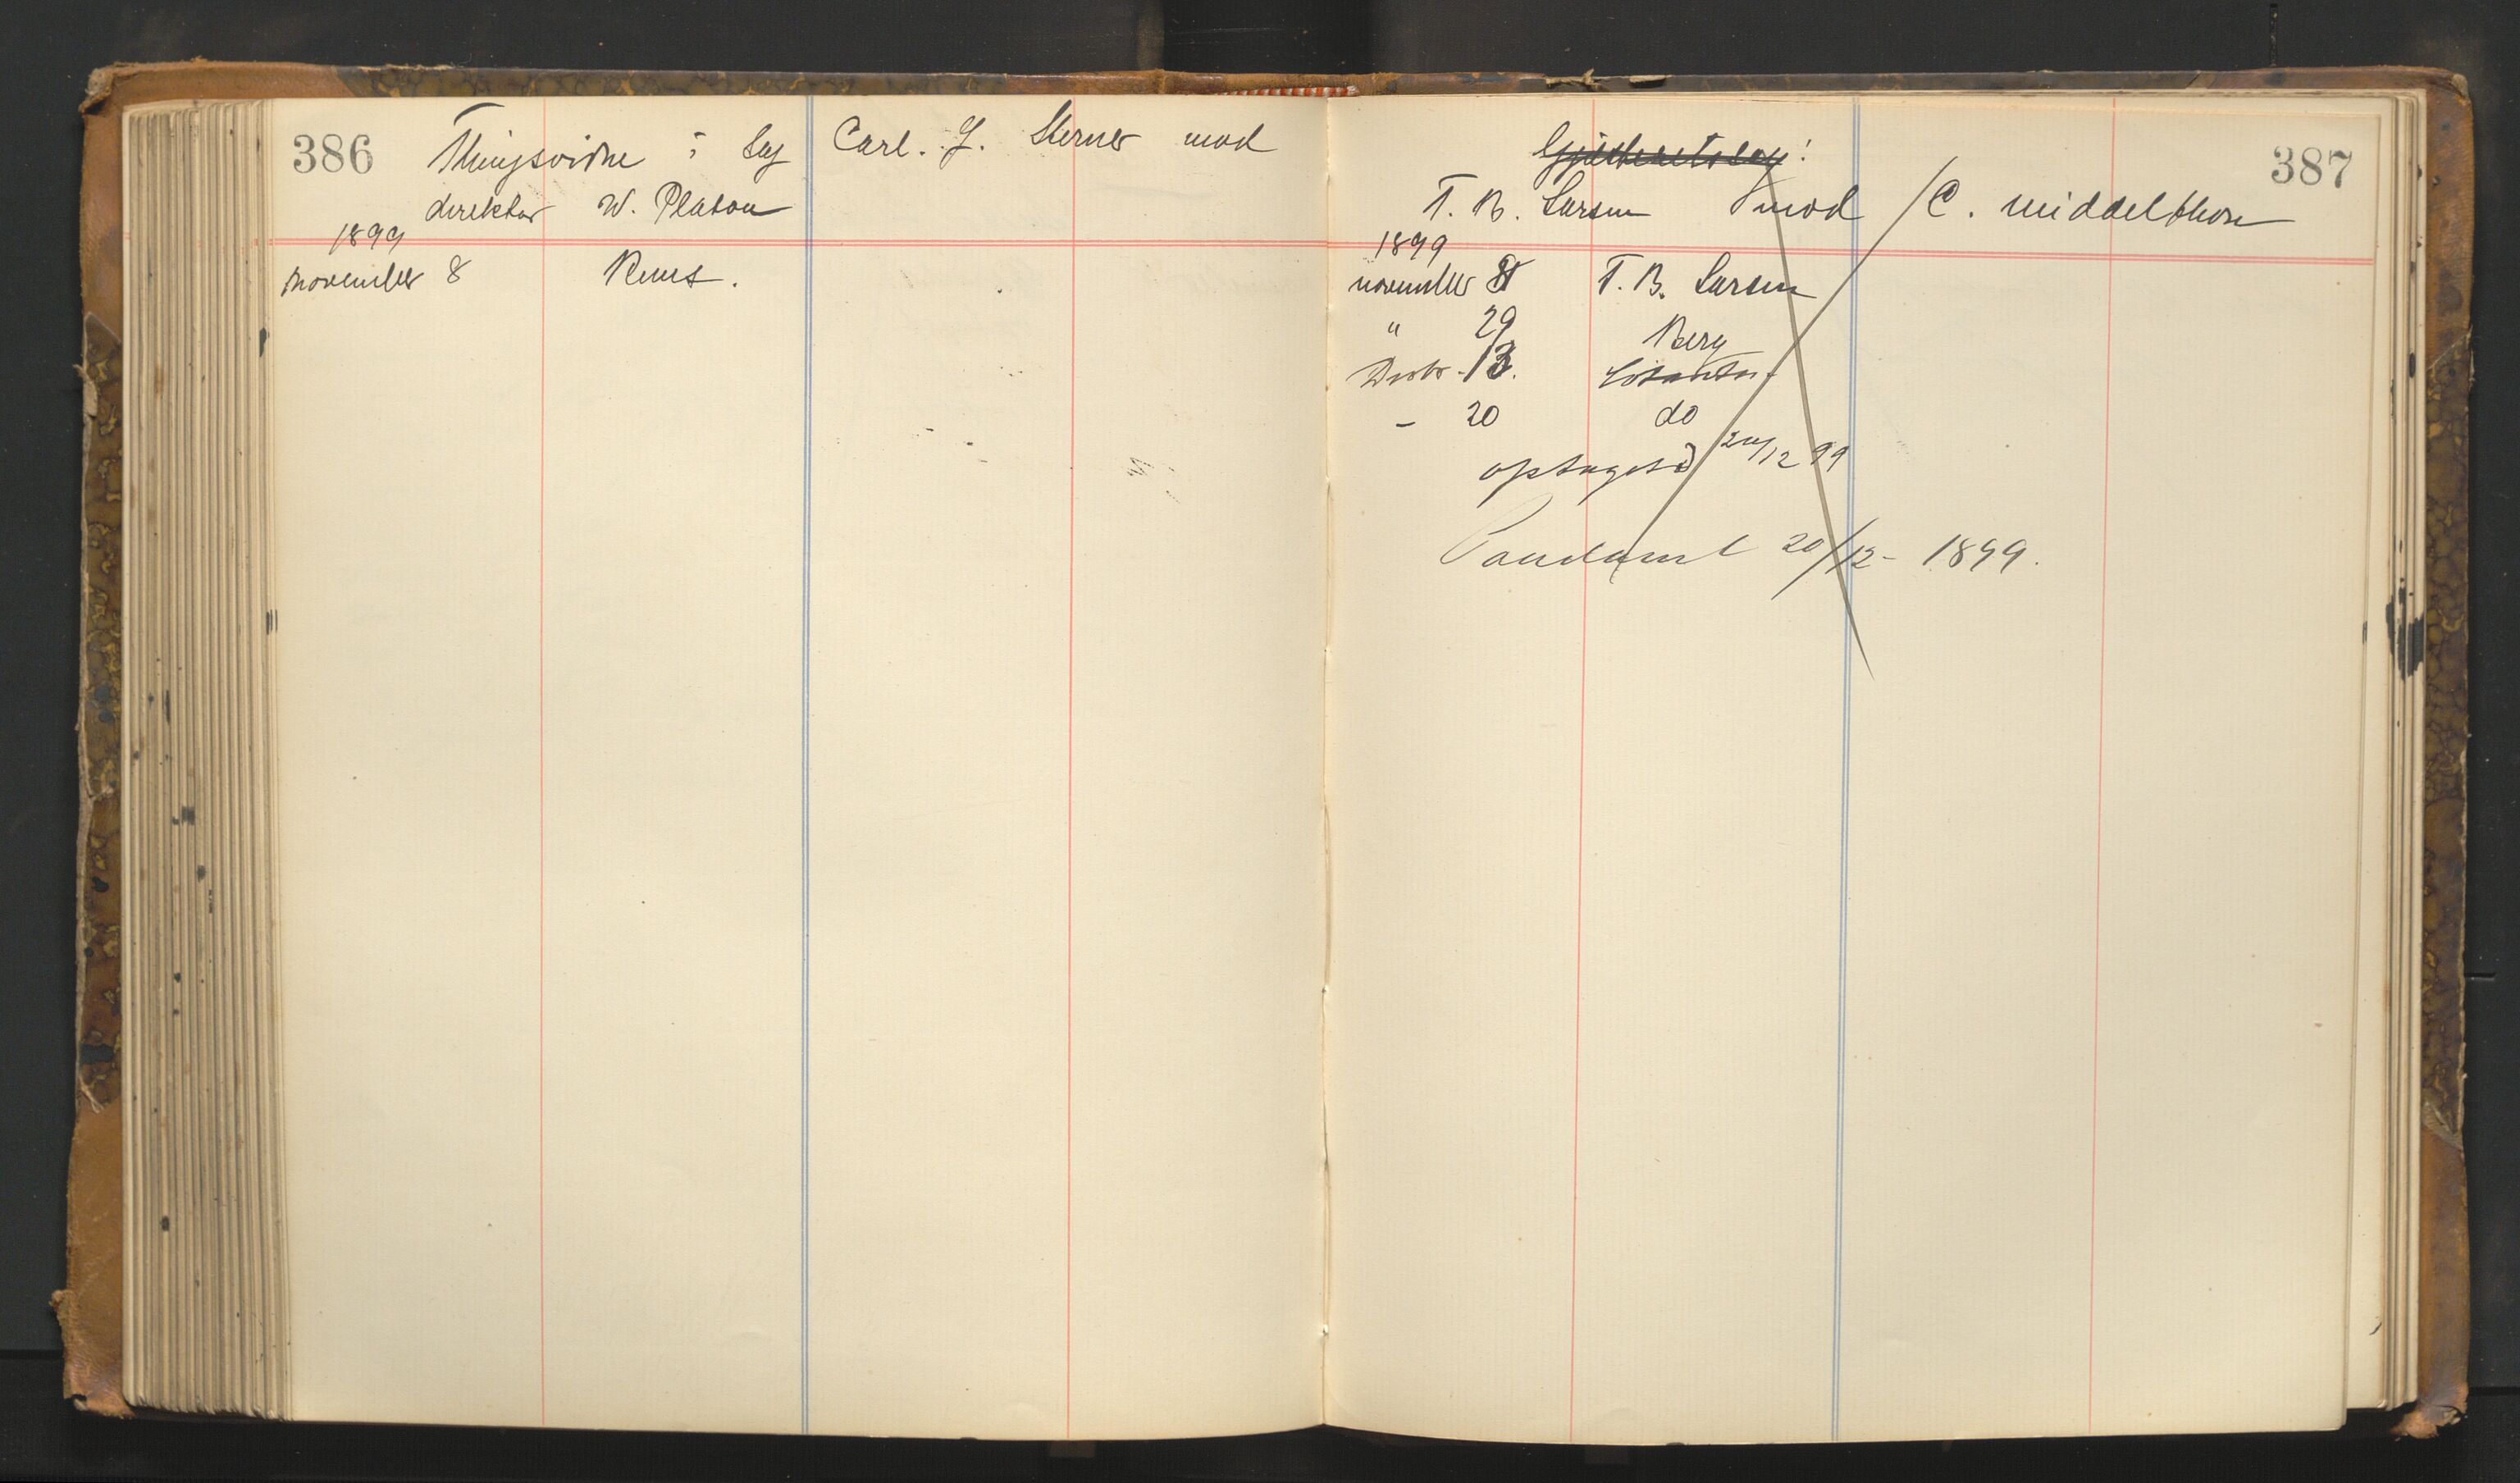 386
Thingsvidne i Sag Carl. J. Sterner mod
direktør W. Platou
1899
november 8 Reus.
387
Gjæsteretssag!
T. B. Larsen mod C. Middelthon
1899
november 8 T. B. Larsen
" 29 Berg
Decbr. 13.
- 20 do
optaget 20/12 99
20/12 - 1899.